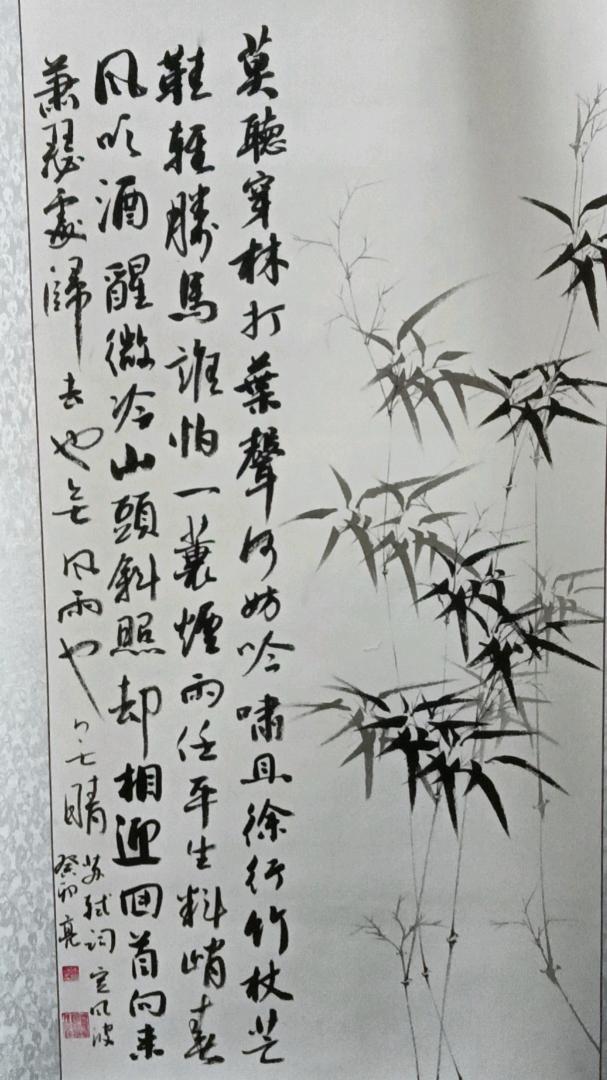 莫聽穿林打葉聲何妨吟嘯且徐行竹杖芒
鞋輕勝馬誰怕一蓑煙雨任平生料峭春
风吹酒醒微冷山頭斜照却相迎回首向来
蕭瑟處歸去也无风雨也无晴
苏轼词定风波
癸卯亮